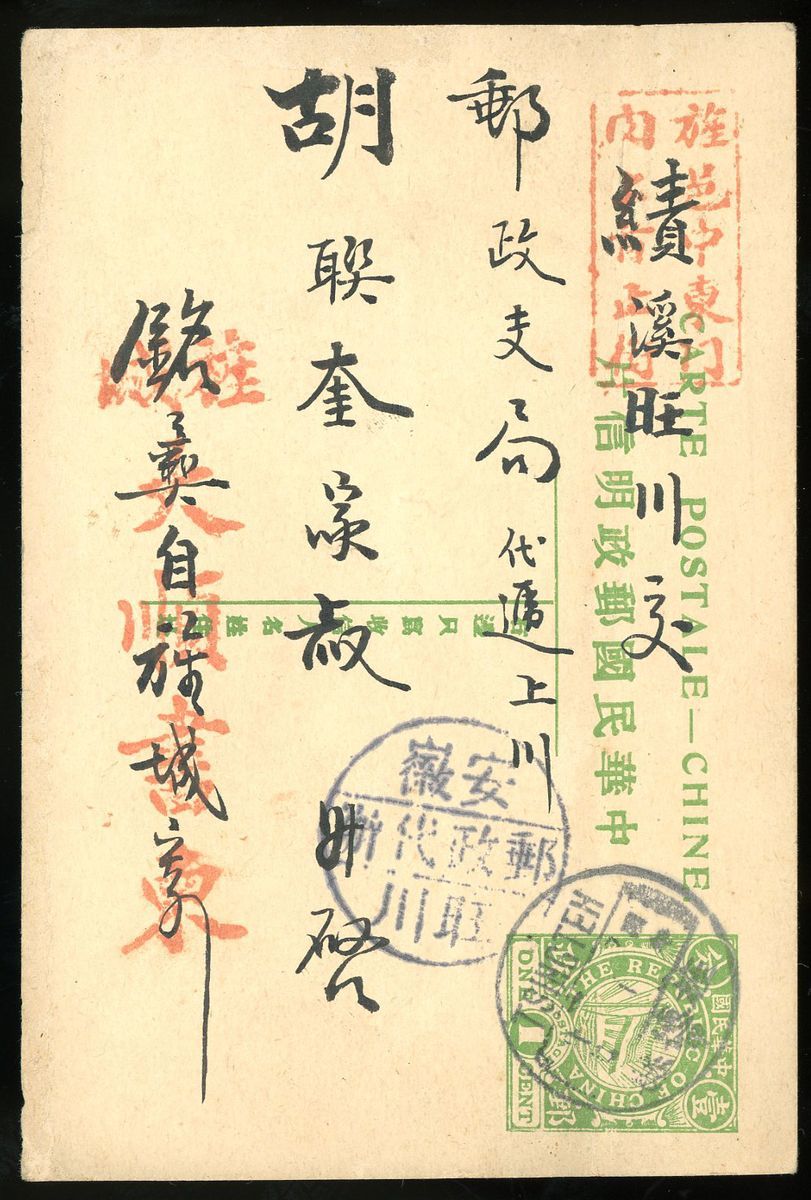 績溪旺川交
郵政支局代遞上川
胡聯奎家叔 升啓
銘彝自旌城寄
CARTE POSTALE—CHINE
中華民國郵政明信片
旌邑中東門
內
旌
美順書柬
安徽
郵政代辦
旺川
TSINGTEH
中華民國郵
壹分
THE REPUBLIC OF CHINA
POSTAGE
ONE 1 CENT